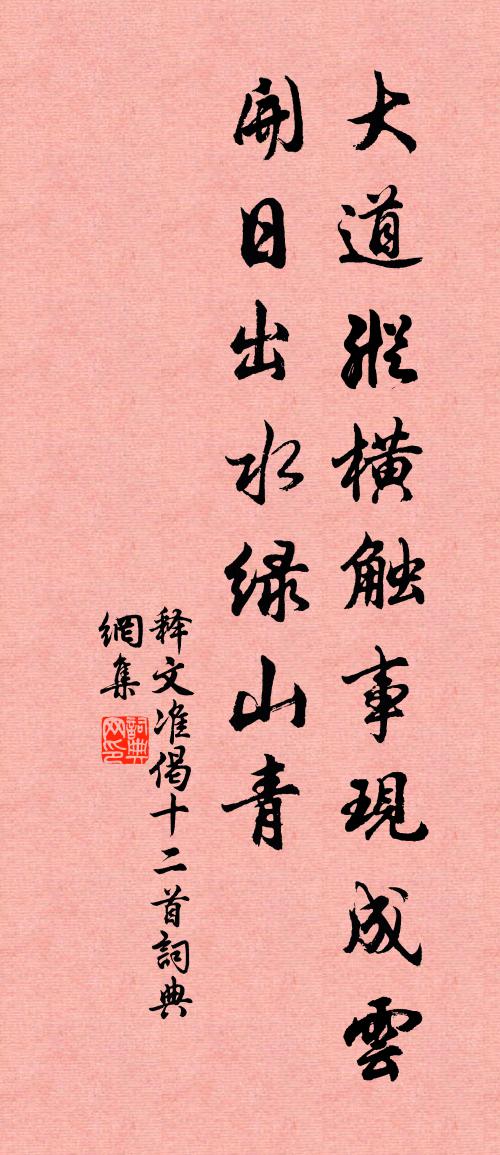 大道縱橫触事現成雲
開日出水绿山青
释文准偈十二首詞典
網集
詞典網印